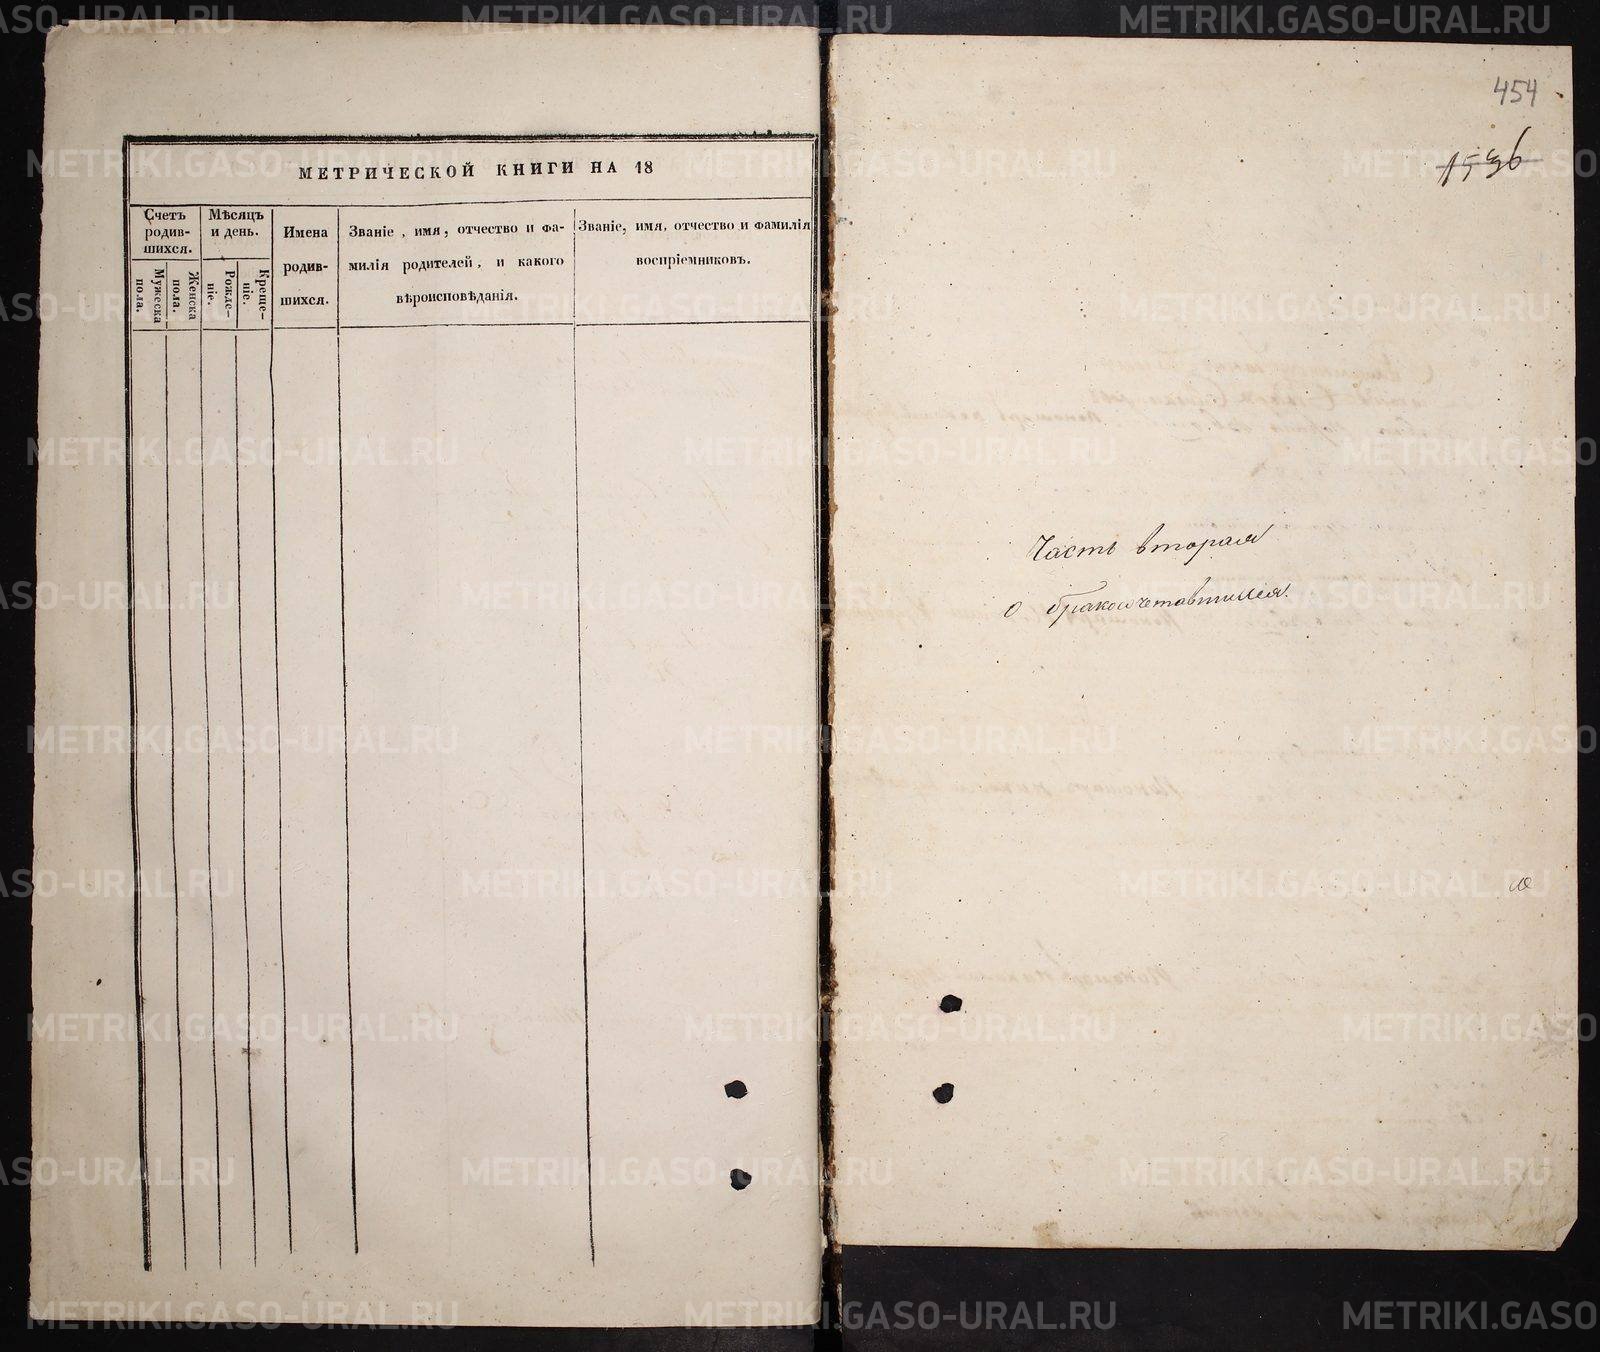 МЕТРИЧЕСКОЙ КНИГИ НА 18
Счетъ родив-шихся.
Мѣсяцъ и день.
Имена родив-шихся.
Званіе, имя, отчество и фа-
милія родителей, и какого
вѣроисповѣданія.
Званіе, имя, отчество и фамилія
воспріемниковъ.
Мужеска пола.
Женска пола.
Рожде-ніе.
Креще-ніе.
454
1536
Часть вторая
о бракосочетавшихся.
METRIKI.GASO-URAL.RU